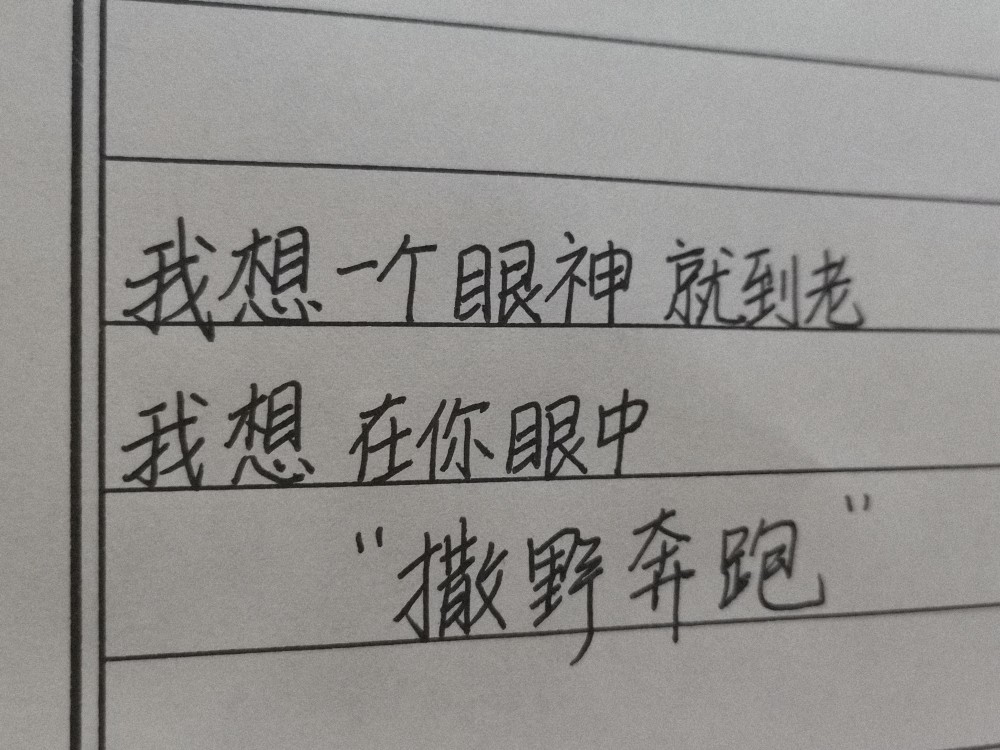 我想一个眼神 就到老
我想 在你眼中
"撒野奔跑"